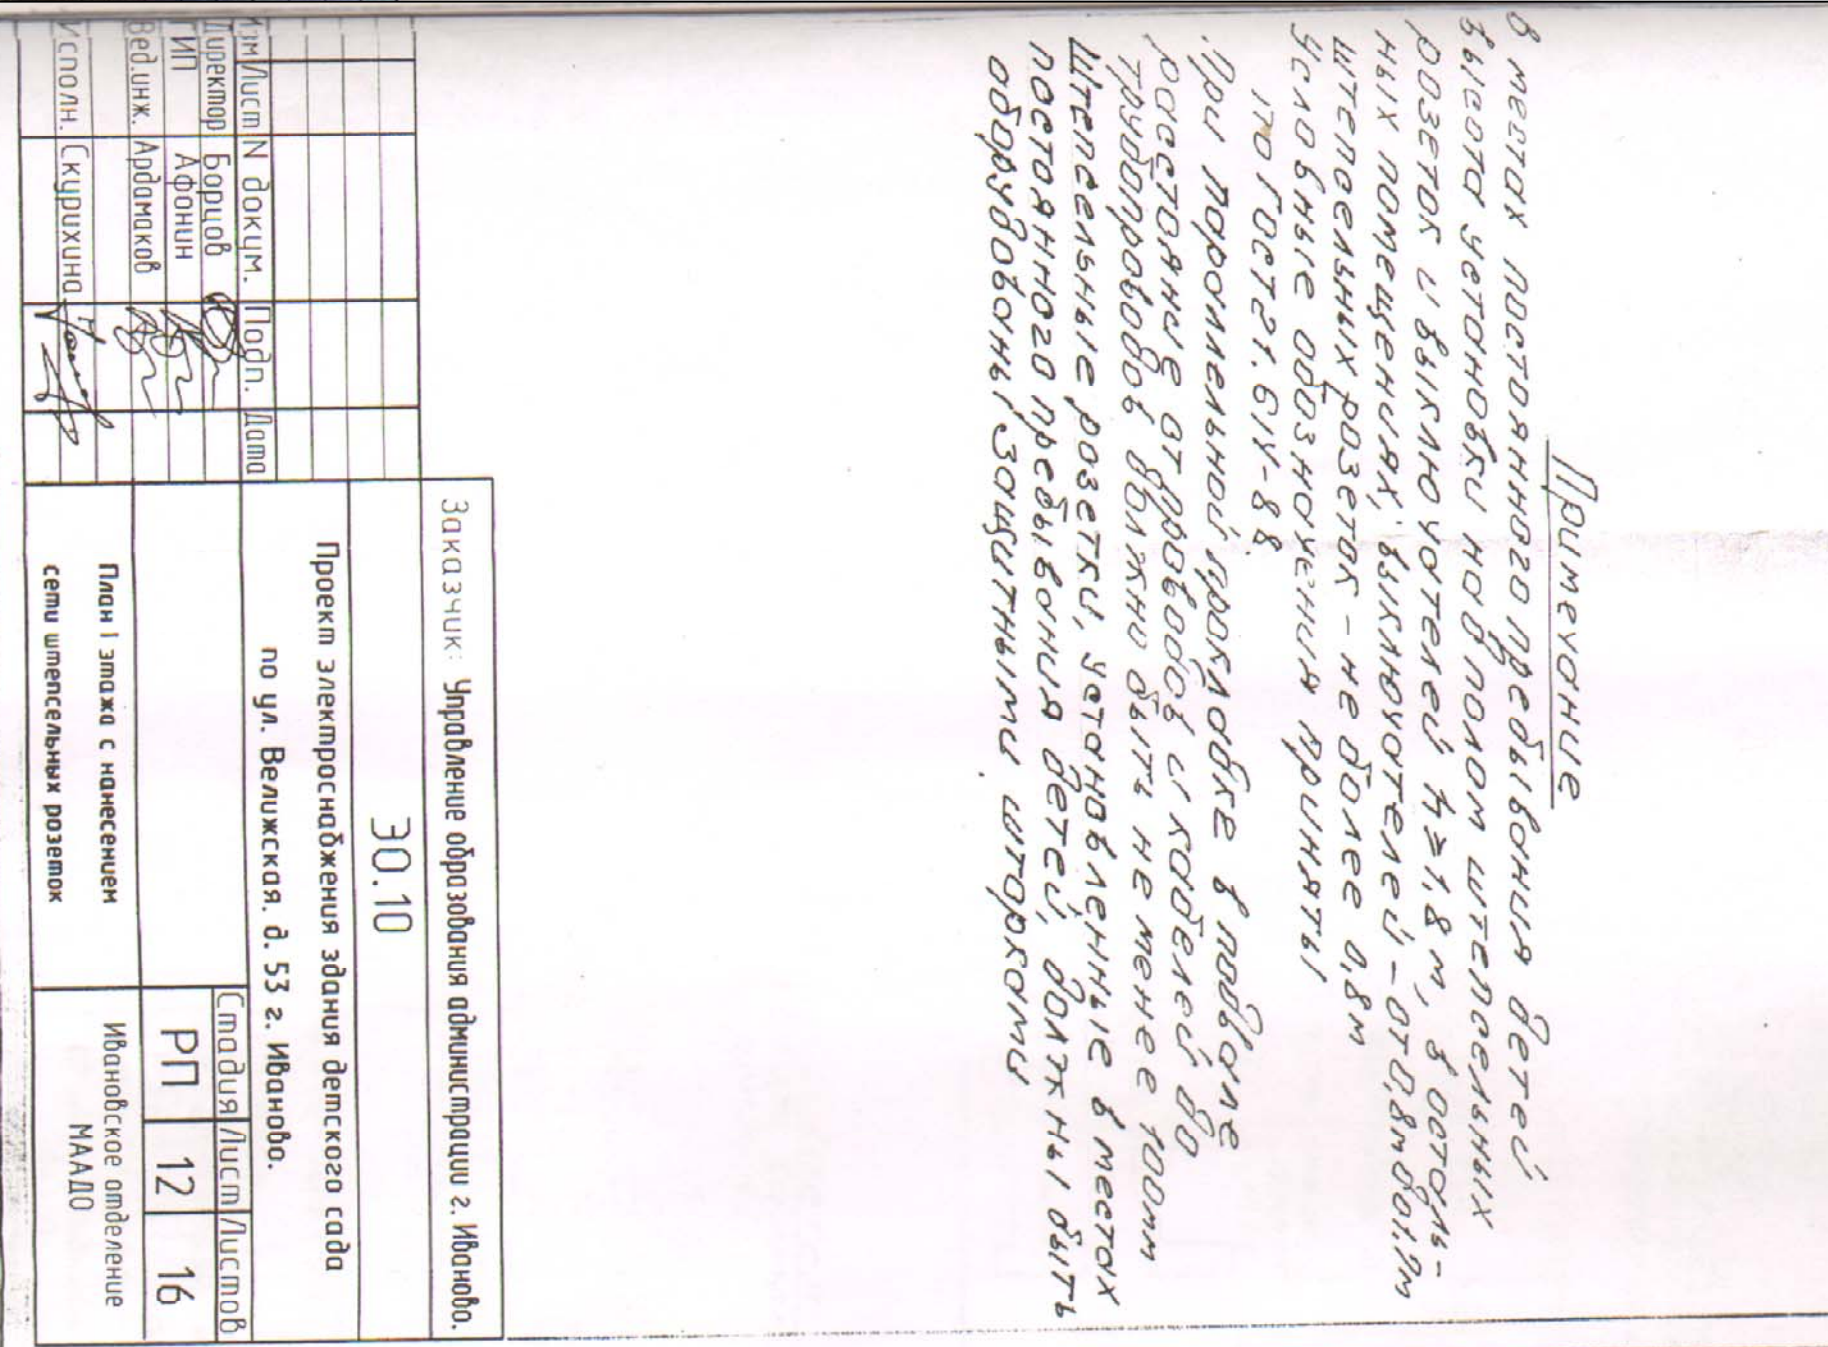 Примечание
В местах постоянного пребывания детей
высота установки над полом штепсельных
розеток и выключателей h ≥ 1,8 м, в осталь-
ных помещениях; выключателей - от 0,8м до 1.7м
штепсельных розеток - не более 0,8м
Условные обозначения приняты
по Гост 21.614-88
При параллельной прокладке в подвале
расстояние от проводов и кабелей до
трубопроводов должно быть не менее 100мм
Штепсельные розетки, установленные в местах
постоянного пребывания детей, должны быть
оборудованы защитными шторками
Заказчик: Управление образования администрации г. Иваново.
ЭО.10
Проект электроснабжения здания детского сада
по ул. Велижская. д. 53 г. Иваново.
Изм Лист N докум. Подп. Дата
Директор Борцов
ГИП Афонин
Вед.инж. Ардамаков
Исполн. Скурихина
Стадия Лист Листов
РП 12 16
План 1 этажа с нанесением
сети штепсельных розеток
Ивановское отделение
МААДО